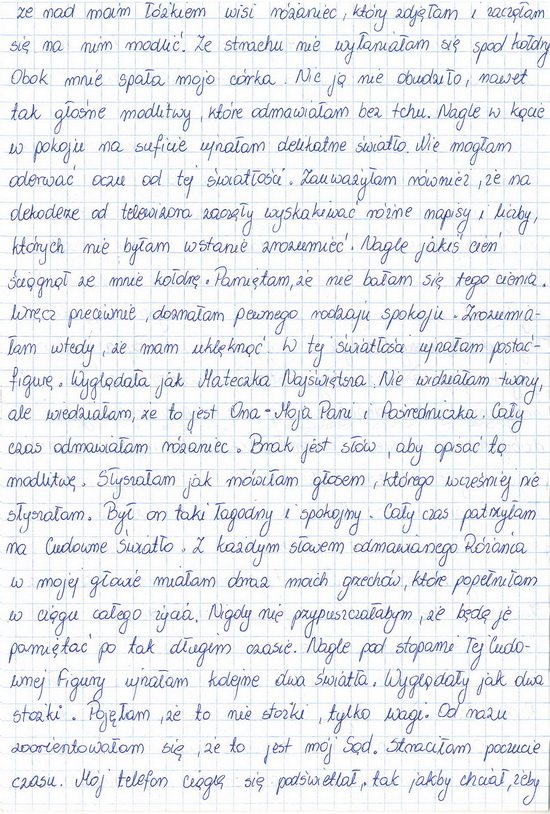 że nad moim łóżkiem wisi różaniec, który zdjęłam i zaczęłam
się na nim modlić. Ze strachu nie wyłaniałam się spod kołdry.
Obok mnie spała moja córka. Nic ją nie obudziło, nawet
tak głośne modlitwy, które odmawiałam bez tchu. Nagle w kącie
w pokoju na suficie ujrzałam delikatne światło. Nie mogłam
oderwać oczu od tej światłości. Zauważyłam również, że na
dekoderze od telewizora zaczęły wyskakiwać różne napisy i liczby,
których nie byłam wstanie zrozumieć. Nagle jakiś cień
ściągnął ze mnie kołdrę. Pamiętam, że nie bałam się tego cienia.
Wręcz przeciwnie, doznałam pewnego rodzaju spokoju. Zrozumia-
łam wtedy, że mam uklęknąć. W tej światłości ujrzałam postać-
figurę. Wyglądała jak Mateczka Najświętsza. Nie widziałam twarzy,
ale wiedziałam, że to jest Ona - Moja Pani i Pośredniczka. Cały
czas odmawiałam różaniec. Brak jest słów, aby opisać tą
modlitwę. Słyszałam jak mówiłam głosem, którego wcześniej nie
słyszałam. Był on taki łagodny i spokojny. Cały czas patrzyłam
na Cudowne Światło. Z każdym słowem odmawianego Różańca
w mojej głowie miałam obraz moich grzechów, które popełniłam
w ciągu całego życia. Nigdy nie przypuszczałabym, że będę je
pamiętać po tak długim czasie. Nagle pod stopami Tej Cudo-
wnej Figury ujrzałam kolejne dwa światła. Wyglądały jak dwa
stożki. Pojęłam, że to nie stożki, tylko wagi. Od razu
zoorientowałam się, że to jest mój Sąd. Straciłam poczucie
czasu. Mój telefon ciągle się podświetlał, tak jakby chciał, żeby